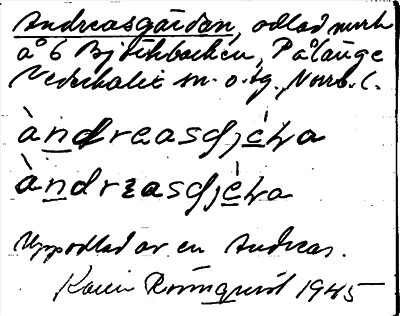 Andreasgärdan, odlad mark
å 6 Björkbacken, Pålänge
Nederkalix sn. o. tg., Norrb. l.
àndreasdjæ̀ɖa
àndrɛasdjæ̀ɖa
Uppodlad av en Andreas.
Karin Rönnquist 1945